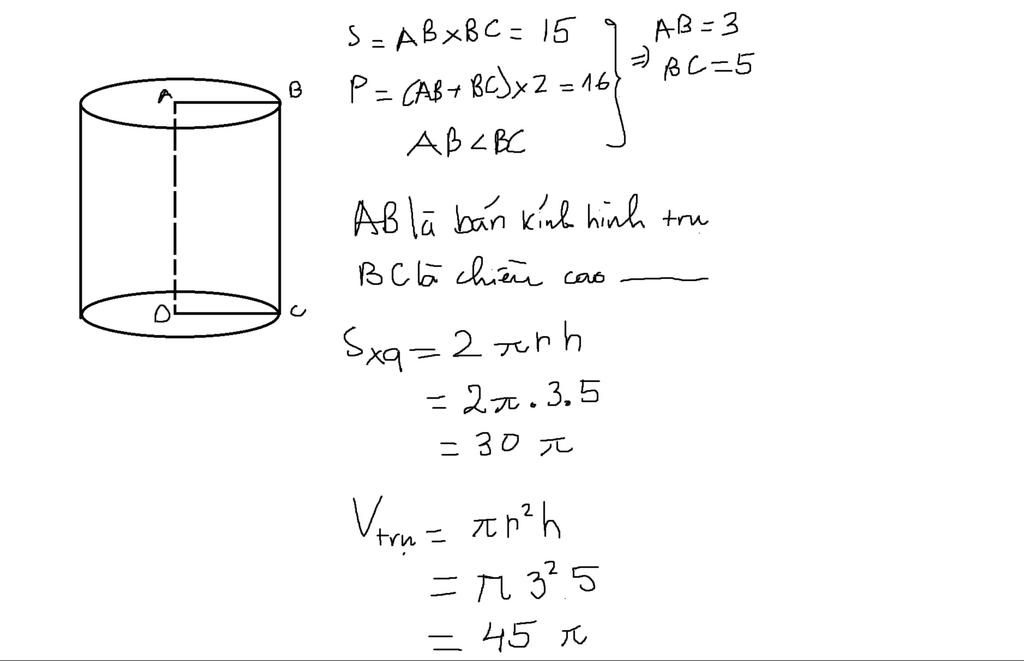 A B
D C
S = AB×BC = 15
P = (AB + BC)×2 = 16
AB < BC
⇒ AB = 3
BC = 5
AB là bán kính hình trụ
BC là chiều cao ———
Sxq = 2πrh
= 2π.3.5
= 30π
Vtrụ = πr²h
= π 3² 5
= 45π